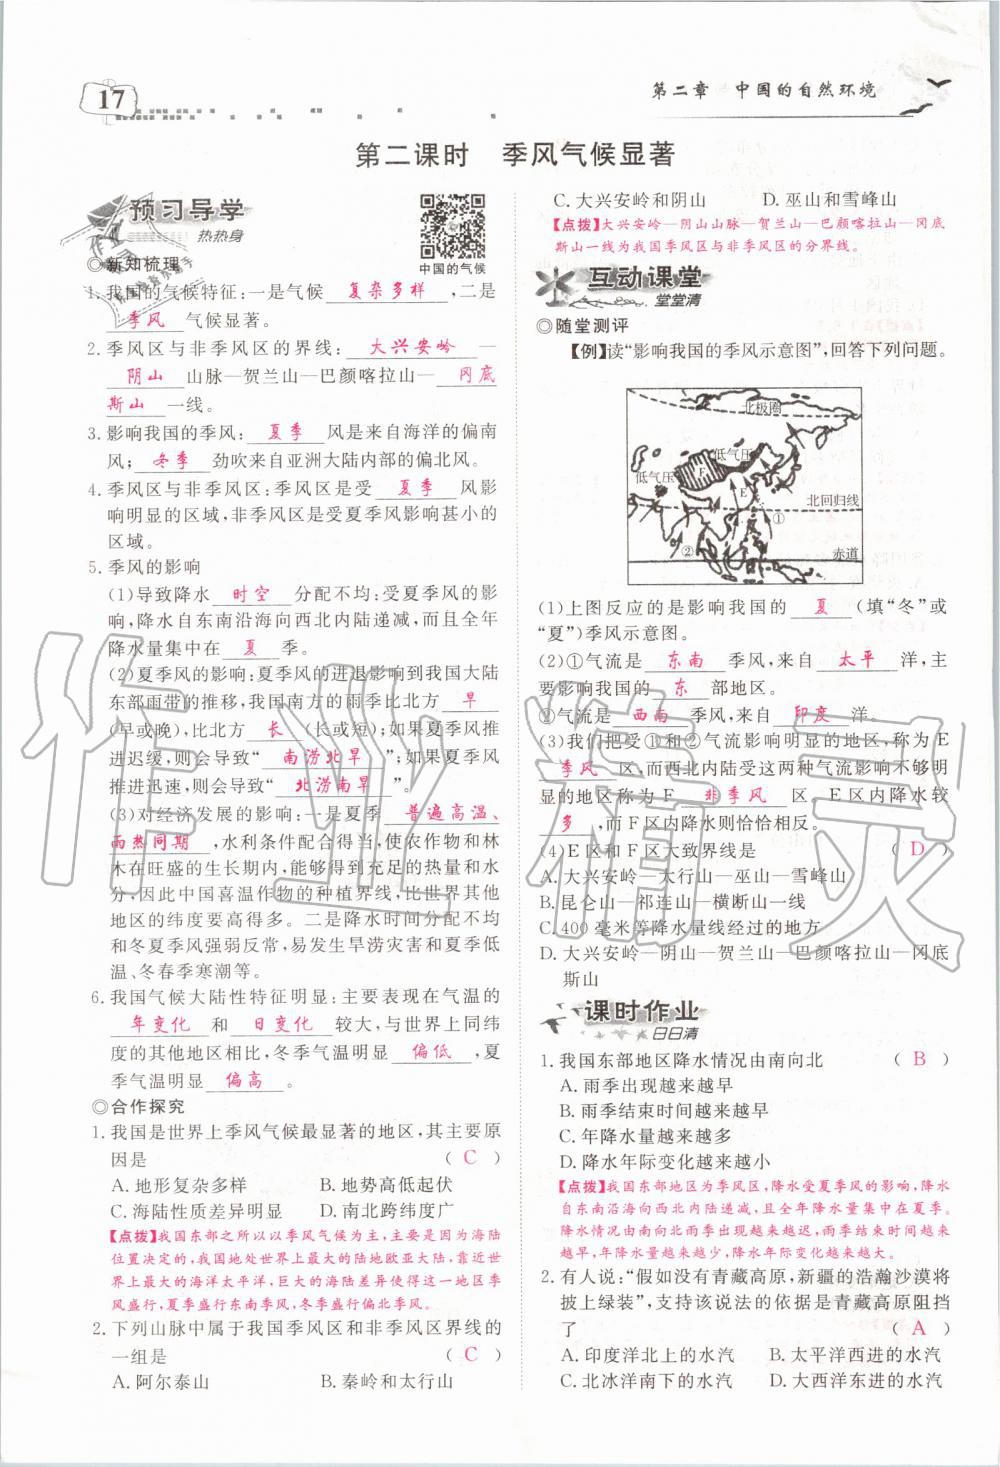 17
第二章 中国的自然环境
第二课时 季风气候显著
预习导学
热热身
中国的气候
◎新知梳理
1. 我国的气候特征:一是气候 复杂多样 ,二是
季风 气候显著。
2. 季风区与非季风区的界线: 大兴安岭 —
阴山 山脉—贺兰山—巴颜喀拉山— 冈底
斯山 一线。
3. 影响我国的季风: 夏季 风是来自海洋的偏南
风; 冬季 劲吹来自亚洲大陆内部的偏北风。
4. 季风区与非季风区:季风区是受 夏季 风影
响明显的区域,非季风区是受夏季风影响甚小的
区域。
5. 季风的影响
(1)导致降水 时空 分配不均:受夏季风的影
响,降水自东南沿海向西北内陆递减,而且全年
降水量集中在 夏 季。
(2)夏季风的影响:夏季风的进退影响到我国大陆
东部雨带的推移,我国南方的雨季比北方 早
(早或晚),比北方 长 (长或短);如果夏季风推
进迟缓,则会导致“ 南涝北旱 ”;如果夏季风
推进迅速,则会导致“ 北涝南旱 ”。
(3)对经济发展的影响:一是夏季 普遍高温、
雨热同期 ,水利条件配合得当,使农作物和林
木在旺盛的生长期内,能够得到充足的热量和水
分,因此中国喜温作物的种植界线,比世界其他
地区的纬度要高得多。二是降水时间分配不均
和冬夏季风强弱反常,易发生旱涝灾害和夏季低
温、冬春季寒潮等。
6. 我国气候大陆性特征明显:主要表现在气温的
年变化 和 日变化 较大,与世界上同纬
度的其他地区相比,冬季气温明显 偏低 ,夏
季气温明显 偏高 。
◎合作探究
1. 我国是世界上季风气候最显著的地区,其主要原
因是 ( C )
A. 地形复杂多样 B. 地势高低起伏
C. 海陆性质差异明显 D. 南北跨纬度广
【点拨】我国东部之所以以季风气候为主,主要是因为海陆
位置决定的,我国地处世界上最大的陆地欧亚大陆,靠近世
界上最大的海洋太平洋,巨大的海陆差异使得这一地区季
风盛行,夏季盛行东南季风,冬季盛行偏北季风。
2. 下列山脉中属于我国季风区和非季风区界线的
一组是 ( C )
A. 阿尔泰山 B. 秦岭和太行山
C. 大兴安岭和阴山 D. 巫山和雪峰山
【点拨】大兴安岭—阴山山脉—贺兰山—巴颜喀拉山—冈底
斯山一线为我国季风区与非季风区的分界线。
互动课堂
堂堂清
◎随堂测评
【例】读“影响我国的季风示意图”,回答下列问题。
北极圈
低气压
F
低气压
E
北回归线
①
②
赤道
(1)上图反应的是影响我国的 夏 (填“冬”或
“夏”)季风示意图。
(2)①气流是 东南 季风,来自 太平 洋,主
要影响我国的 东 部地区。
②气流是 西南 季风,来自 印度 洋。
(3)我们把受①和②气流影响明显的地区,称为 E
季风 区,而西北内陆受这两种气流影响不够明
显的地区称为 F 非季风 区。E 区内降水较
多 ,而 F 区内降水则恰恰相反。
(4)E 区和 F 区大致界线是 ( D )
A. 大兴安岭—太行山—巫山—雪峰山
B. 昆仑山—祁连山—横断山一线
C. 400 毫米等降水量线经过的地方
D. 大兴安岭—阴山—贺兰山—巴颜喀拉山—冈底
斯山
课时作业
日日清
1. 我国东部地区降水情况由南向北 ( B )
A. 雨季出现越来越早
B. 雨季结束时间越来越早
C. 年降水量越来越多
D. 降水年际变化越来越小
【点拨】我国东部地区为季风区,降水受夏季风的影响,降水
自东南沿海向西北内陆递减,且全年降水量集中在夏季。
降水情况由南向北雨季出现越来越迟,雨季结束时间越来
越早,年降水量越来越少,降水年际变化越来越大。
2. 有人说:“假如没有青藏高原,新疆的浩瀚沙漠将
披上绿装”,支持该说法的依据是青藏高原阻挡
了 ( A )
A. 印度洋北上的水汽 B. 太平洋西进的水汽
C. 北冰洋南下的水汽 D. 大西洋东进的水汽
作业精灵